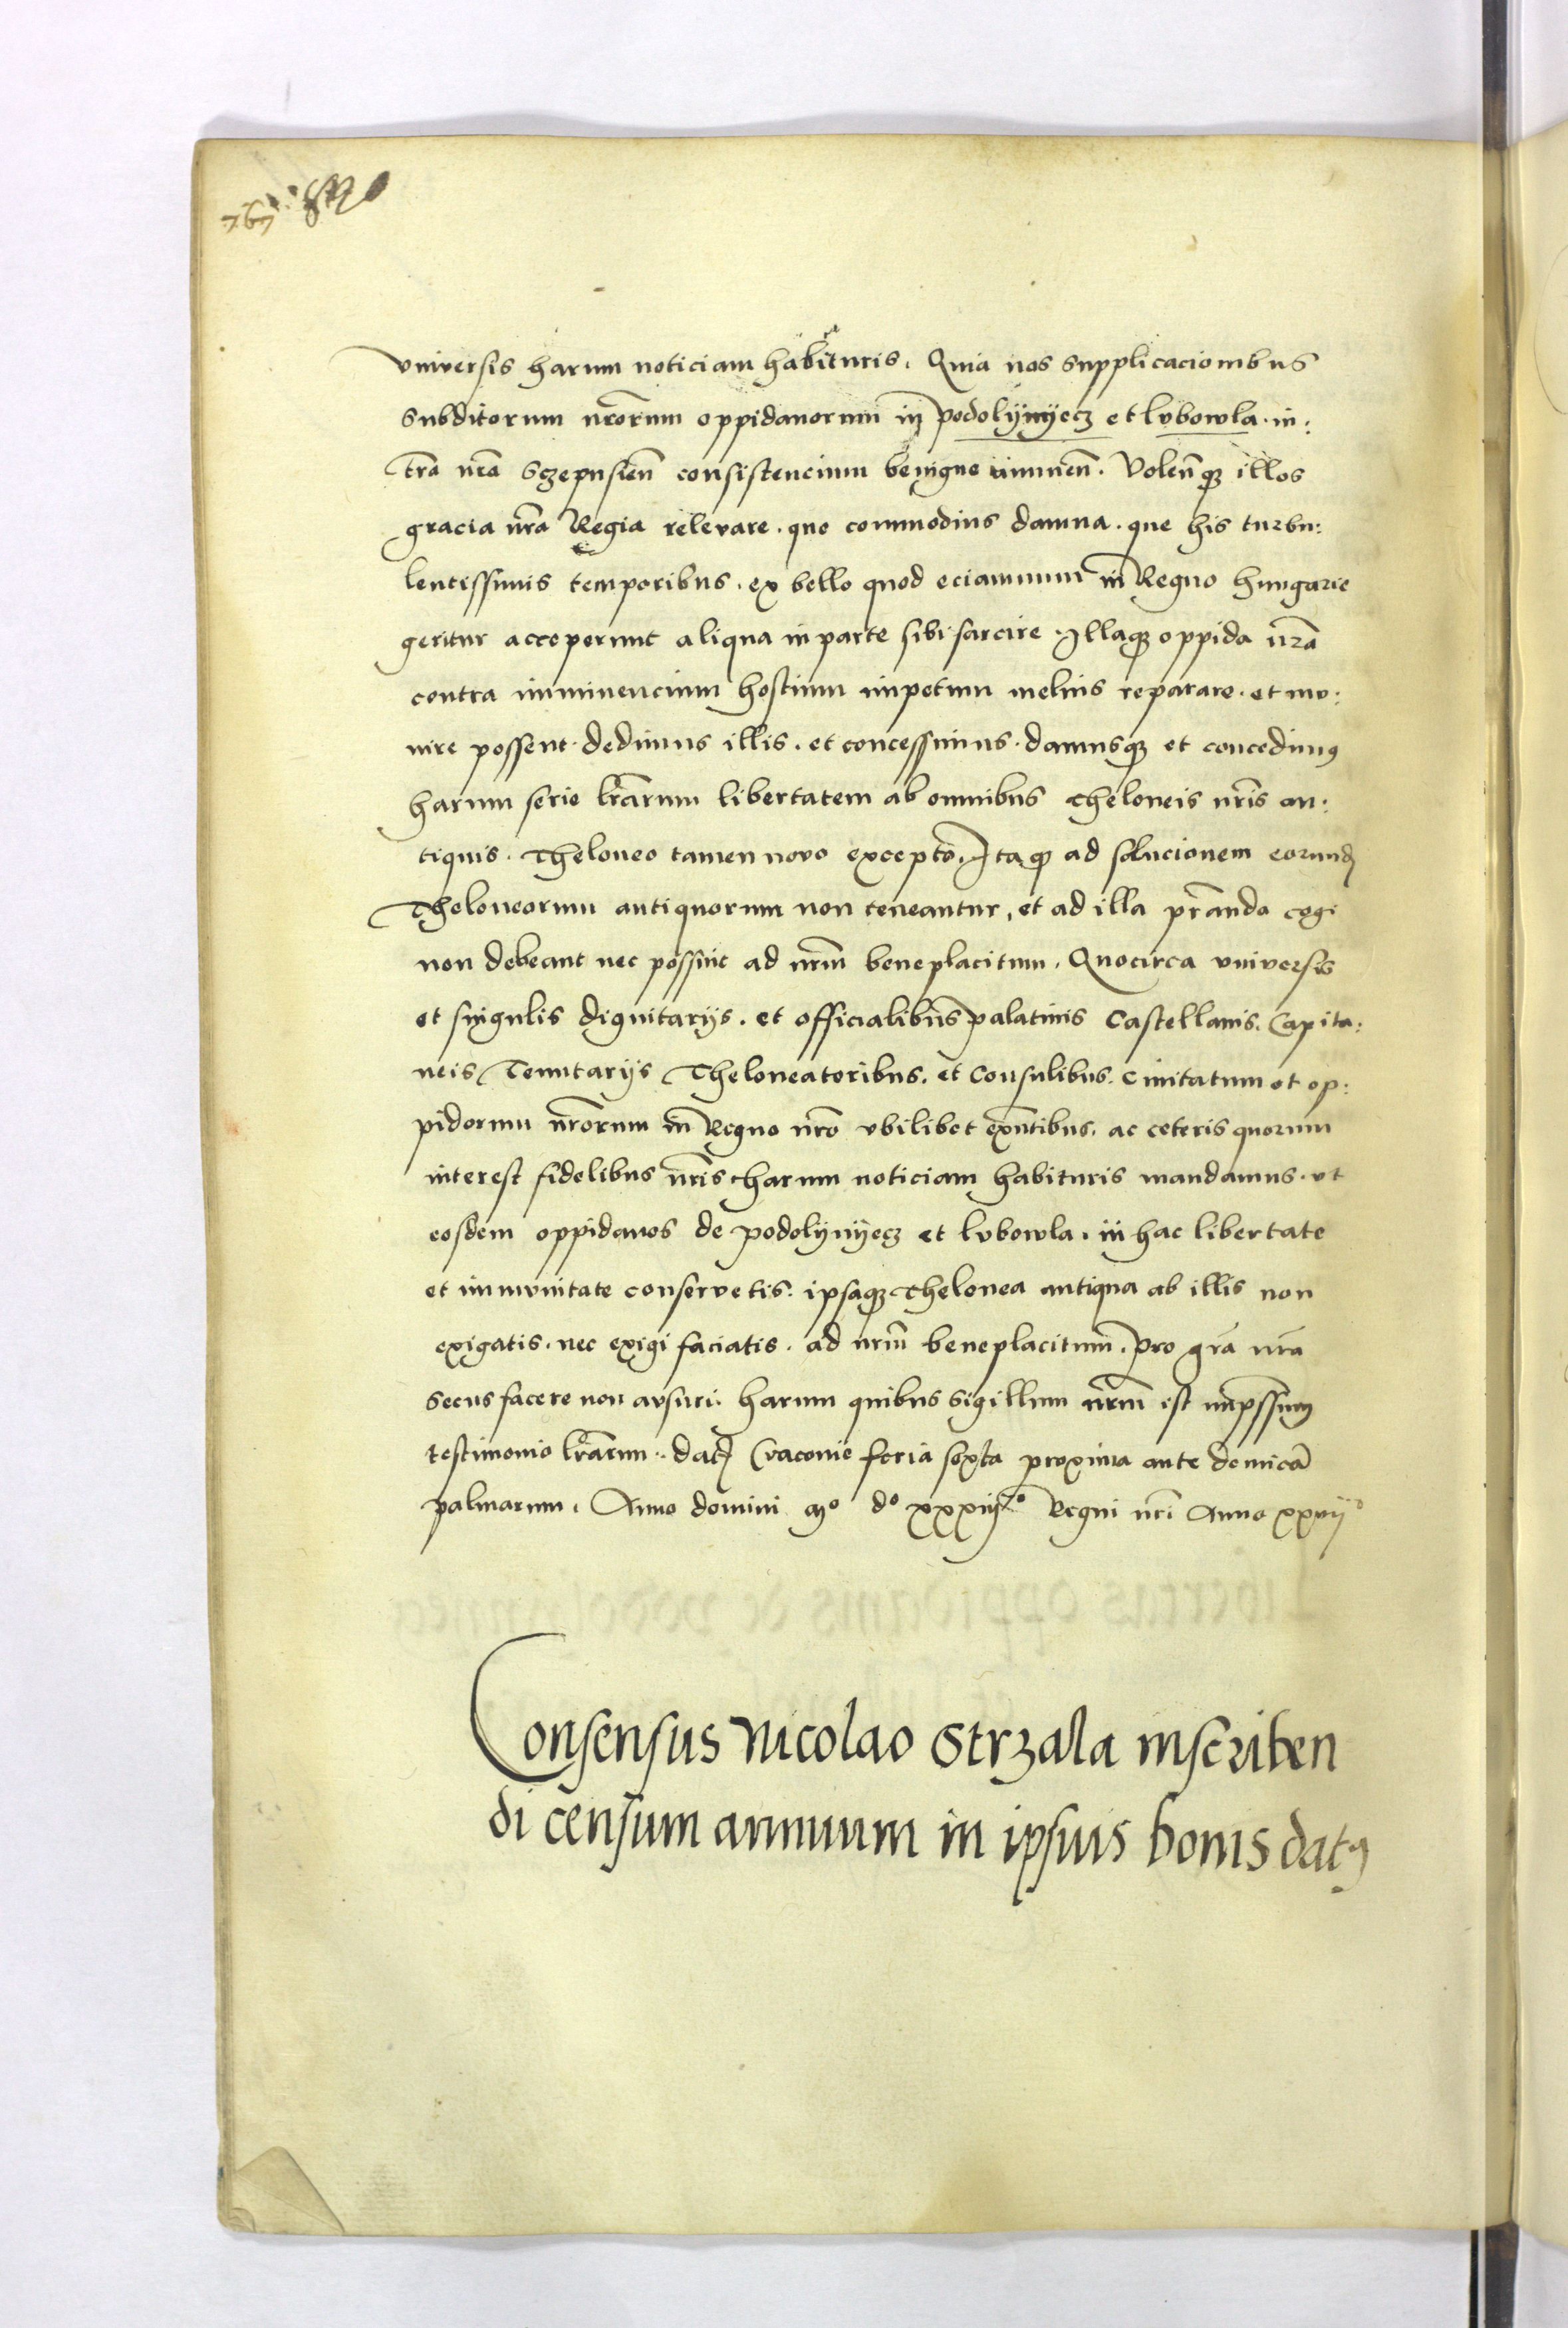 vniversis harum noticiam habituris. Quia nos supplicacionibus
subditorum nr̄orum oppidanorum in podolÿnÿecz et lvbowla. in:
tr̄a nr̄a Sczepusien̄ consistencium benigne annuen̄. Volen̄q3 illos
gracia nr̄a Regia relevare. quo commodius damna. que his turbu:
lentissimis temporibus. ex bello quod eciamnum in Regno hungarie
geritur acceperunt aliqua in parte sibi sarcire. Illaq3 oppida nr̄a
contra imminencium hostium impetum melius reparare. et mv:
nire possent. dedimus illis. et concessimus. damusq3 et concedimus
harum serie lr̄arum libertatem ab omnibus theloneis nr̄is an:
tiquis. Theloneo tamen novo excepto. Itaq3 ad solucionem eorund̄
Theloneorum antiquorum non teneantur, et ad illa pr̄anda cogi
non debeant nec possint ad nr̄m beneplacitum. Quocirca vniversis
et singulis dignitarijs. et officialibus palatinis Castellanis. Capita:
neis Tenutarijs Theloneatoribus. et Consulibus. Civitatum et op:
pidorum nr̄orum in Regno nr̄o vbilibet exn̄tibus. ac ceteris quorum
interest fidelibus nr̄is harum noticiam habituris mandamus. vt
eosdem oppidanos de podolÿnÿecz et lvbowla. in hac libertate
et immvnitate conservetis. ipsaq3 thelonea antiqua ab illis non
exigatis. nec exigi faciatis. ad nr̄m beneplacitum. pro gr̄a nr̄a
secus facere non avsuri. harum quibus sigillum nr̄m est imp̄ssum
testimonio lr̄arum. dat̄ Cracovie feria sexta proxima ante domicā
palmarum. Anno domini Mo do xxxiiijto Regni nr̄i Anno xxviijo
Consensus Nicolao Strzala inscriben
di censum annuum in ipsius bonis datus